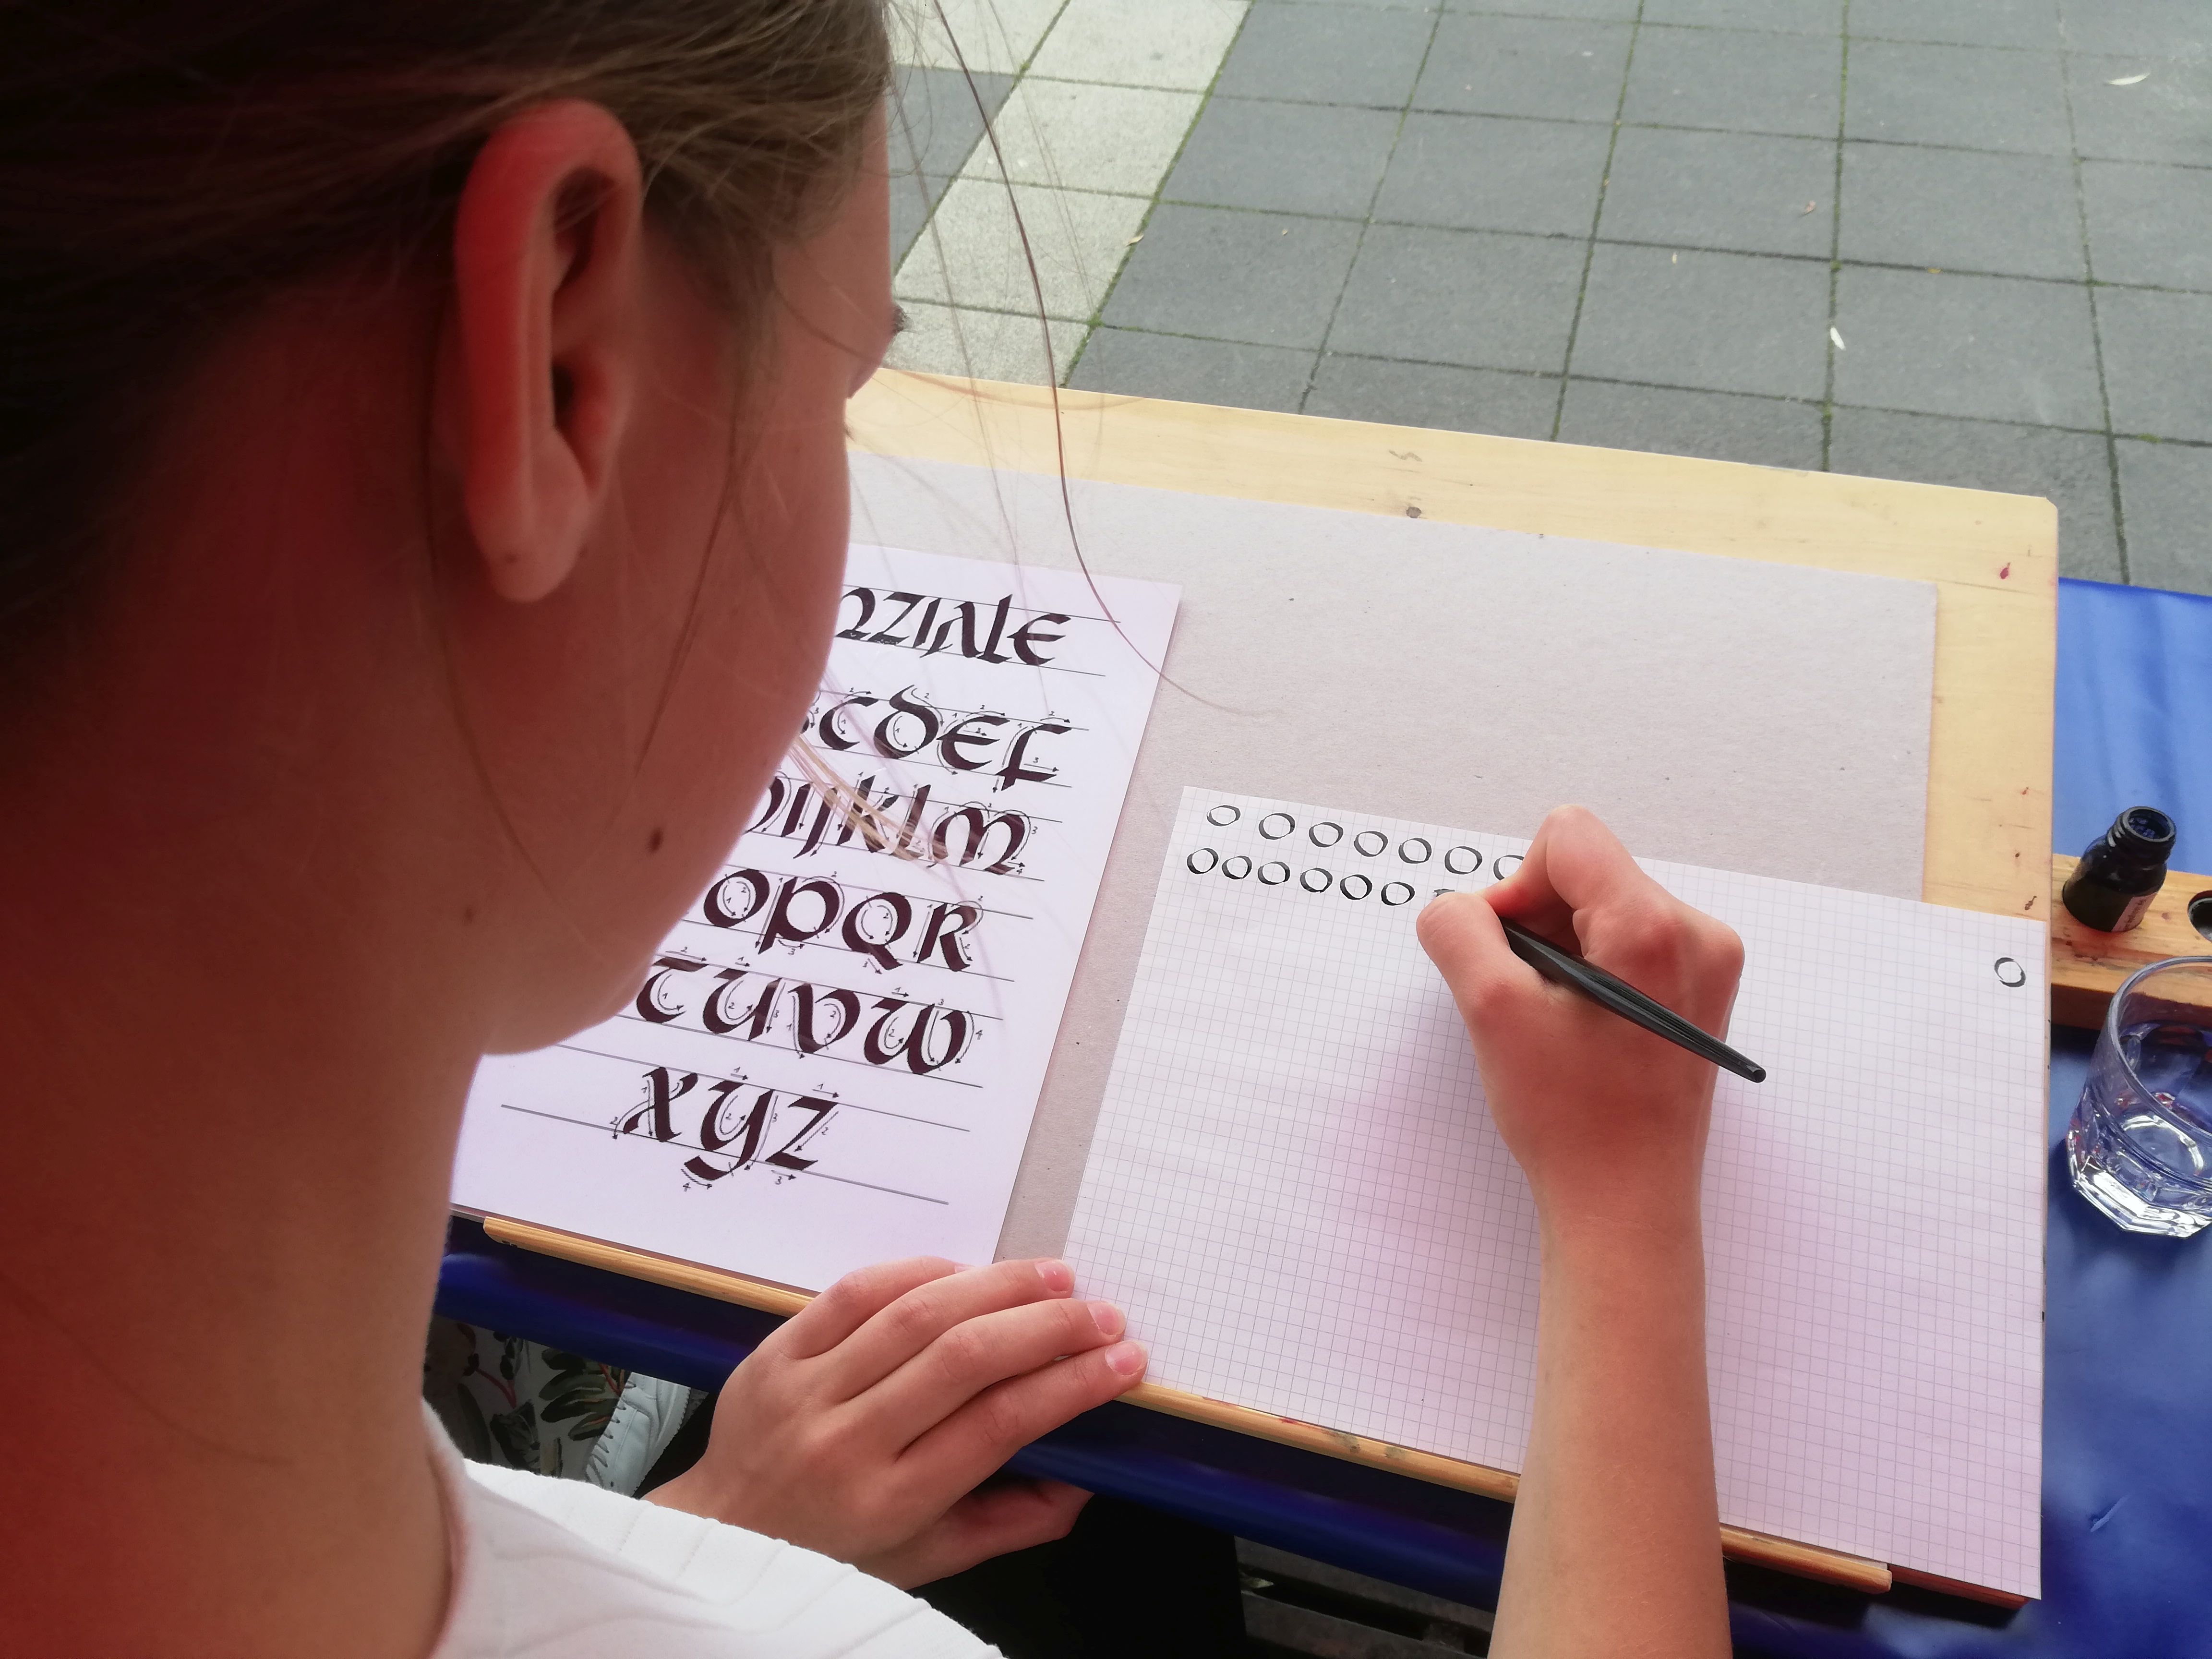 nziale
cdef
ijklm
opqr
tuvw
xyz
o o o o o o o
o o o o o o
o